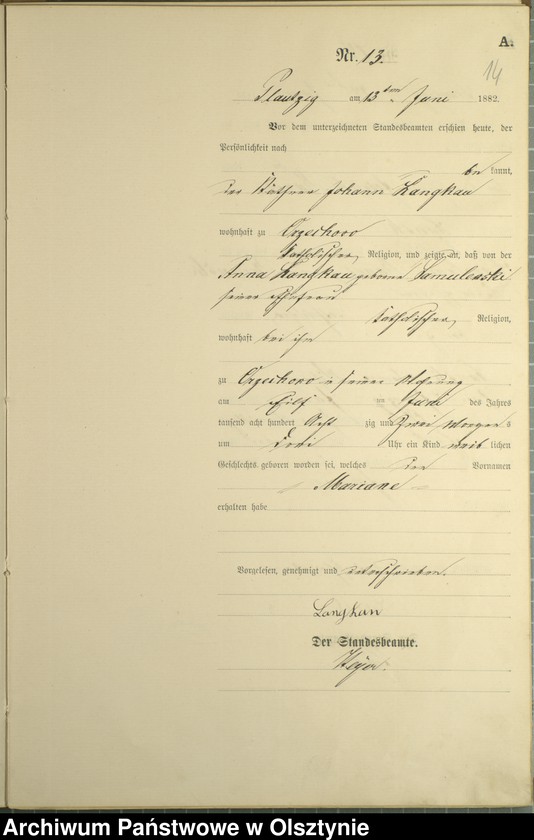 A.
Nr. 13.
14
Plautzig am 13ten Juni 1882.
Vor dem unterzeichneten Standesbeamten erschien heute, der
Persönlichkeit nach
be kannt,
der Käthner Johann Langkau
wohnhaft zu Orzechowo
katholischer Religion, und zeigte an, daß von der
Anna Langkau geborene Samulewski
seiner Ehefrau
katholischer Religion,
wohnhaft bei ihm
zu Orzechowo in seiner Wohnung
am Eilf ten Juni des Jahres
tausend acht hundert Acht zig und Zwei Morgen s
um Drei Uhr ein Kind weib lichen
Geschlechts geboren worden sei, welches den Vornamen
Mariane
erhalten habe
Vorgelesen, genehmigt und unterschrieben.
Langkau
Der Standesbeamte.
Archiwum Państwowe w Olsztynie